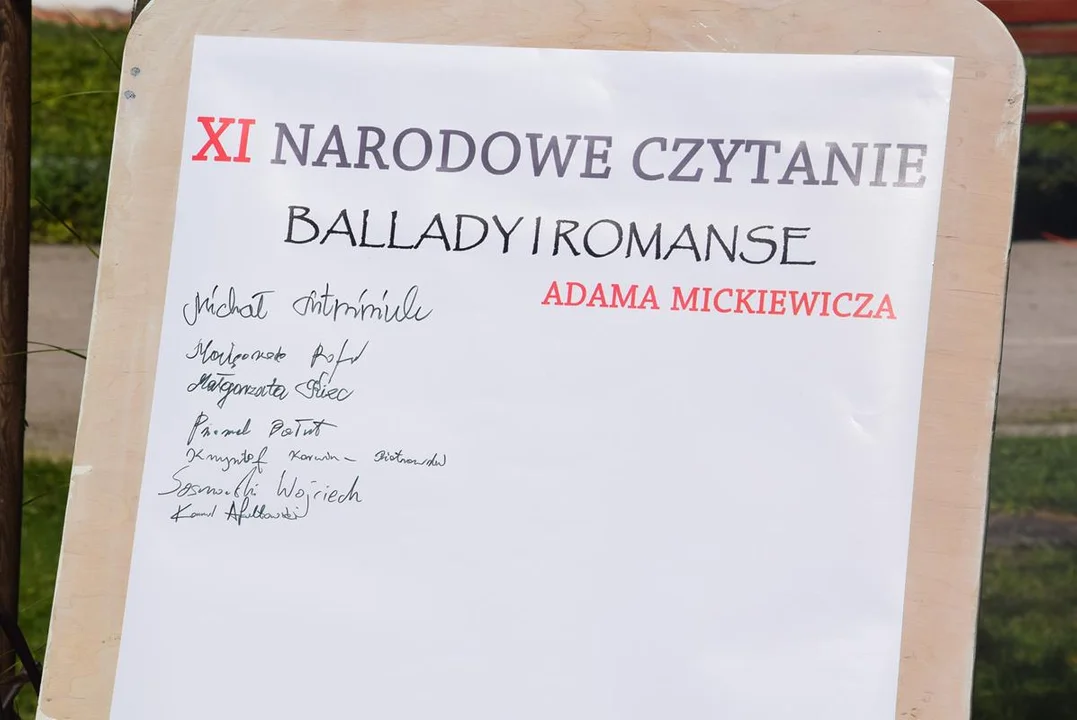 XI NARODOWE CZYTANIE
BALLADY I ROMANSE
ADAMA MICKIEWICZA
Michał
Małgorzata
Krzysztof Korwin - Piotrowski
Sosnowski Wojciech
Kamil